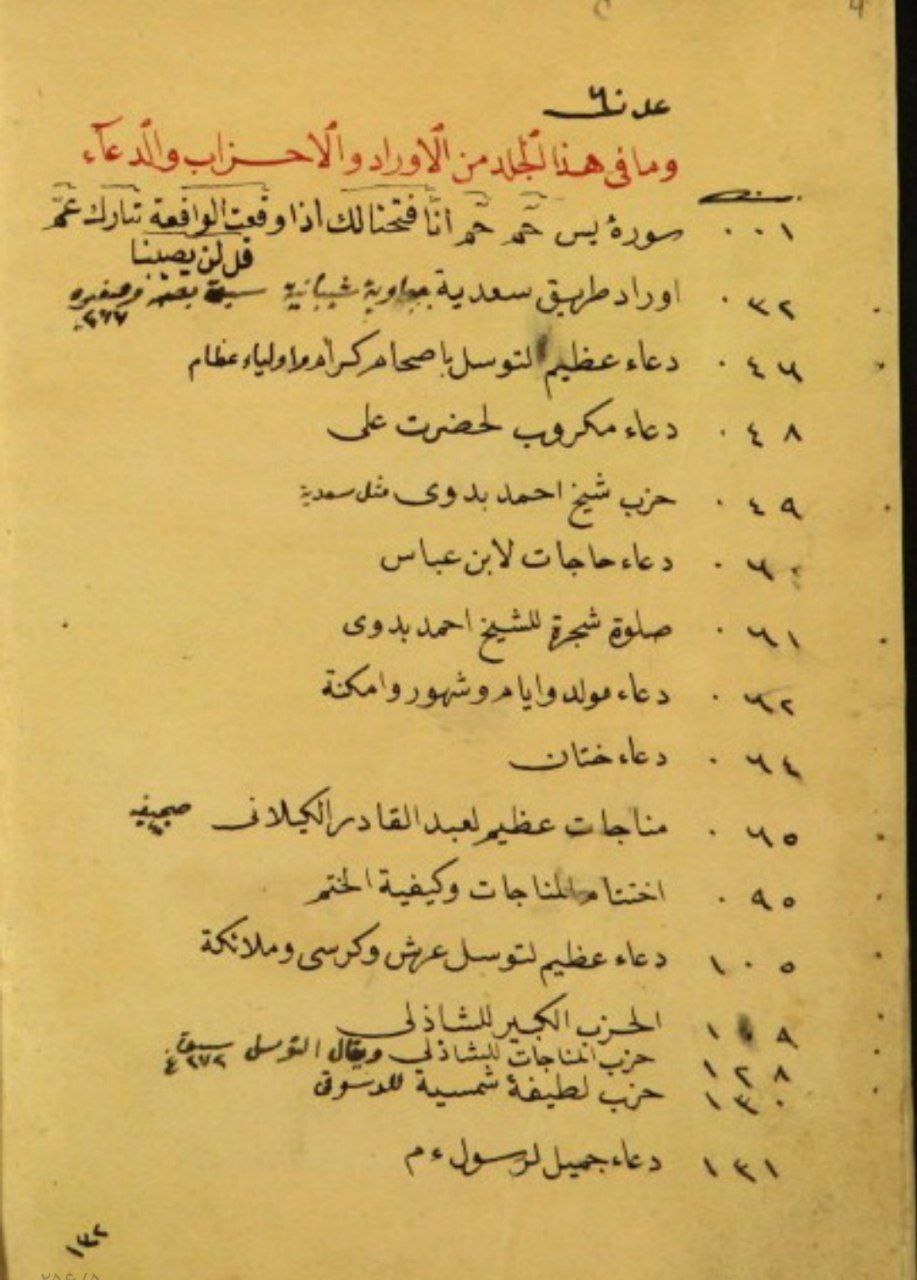 وما فى هذا الجلد من الاوراد والاحزاب والدعاء
٠٠١ سورهٔ يس حم حم انا فتحنا لك اذا وقعت الواقعة تبارك عم
قل لن يصيبنا
٠٣٢ اوراد طريق سعدية شيبانيه
٠٤٦ دعاء عظيم لتوسل باصحاب كرام واولياء عظام
٠٤٨ دعاء مكروب لحضرت على
٠٤٩ حزب شيخ احمد بدوى مثل سعدية
٠٦٠ دعاء حاجات لابن عباس
٠٦١ صلوة شجرة للشيخ احمد بدوى
٠٦٢ دعاء مولد وايام وشهور وامكنة
٠٦٤ دعاء ختان
٠٦٥ مناجات عظيم لعبد القادر الكيلانى
٠٩٥ اختتام المناجات وكيفية الختم
١٠٥ دعاء عظيم لتوسل عرش وكرسى وملائكة
١٠٩ الحزب الكبير للشاذلى
١٢٨ حزب المناجات للشاذلى ويقال التوسل
١٣٠ حزب لطيفة شمسية للدسوقى
١٣١ دعاء جميل لرسول ءم
١٣٢